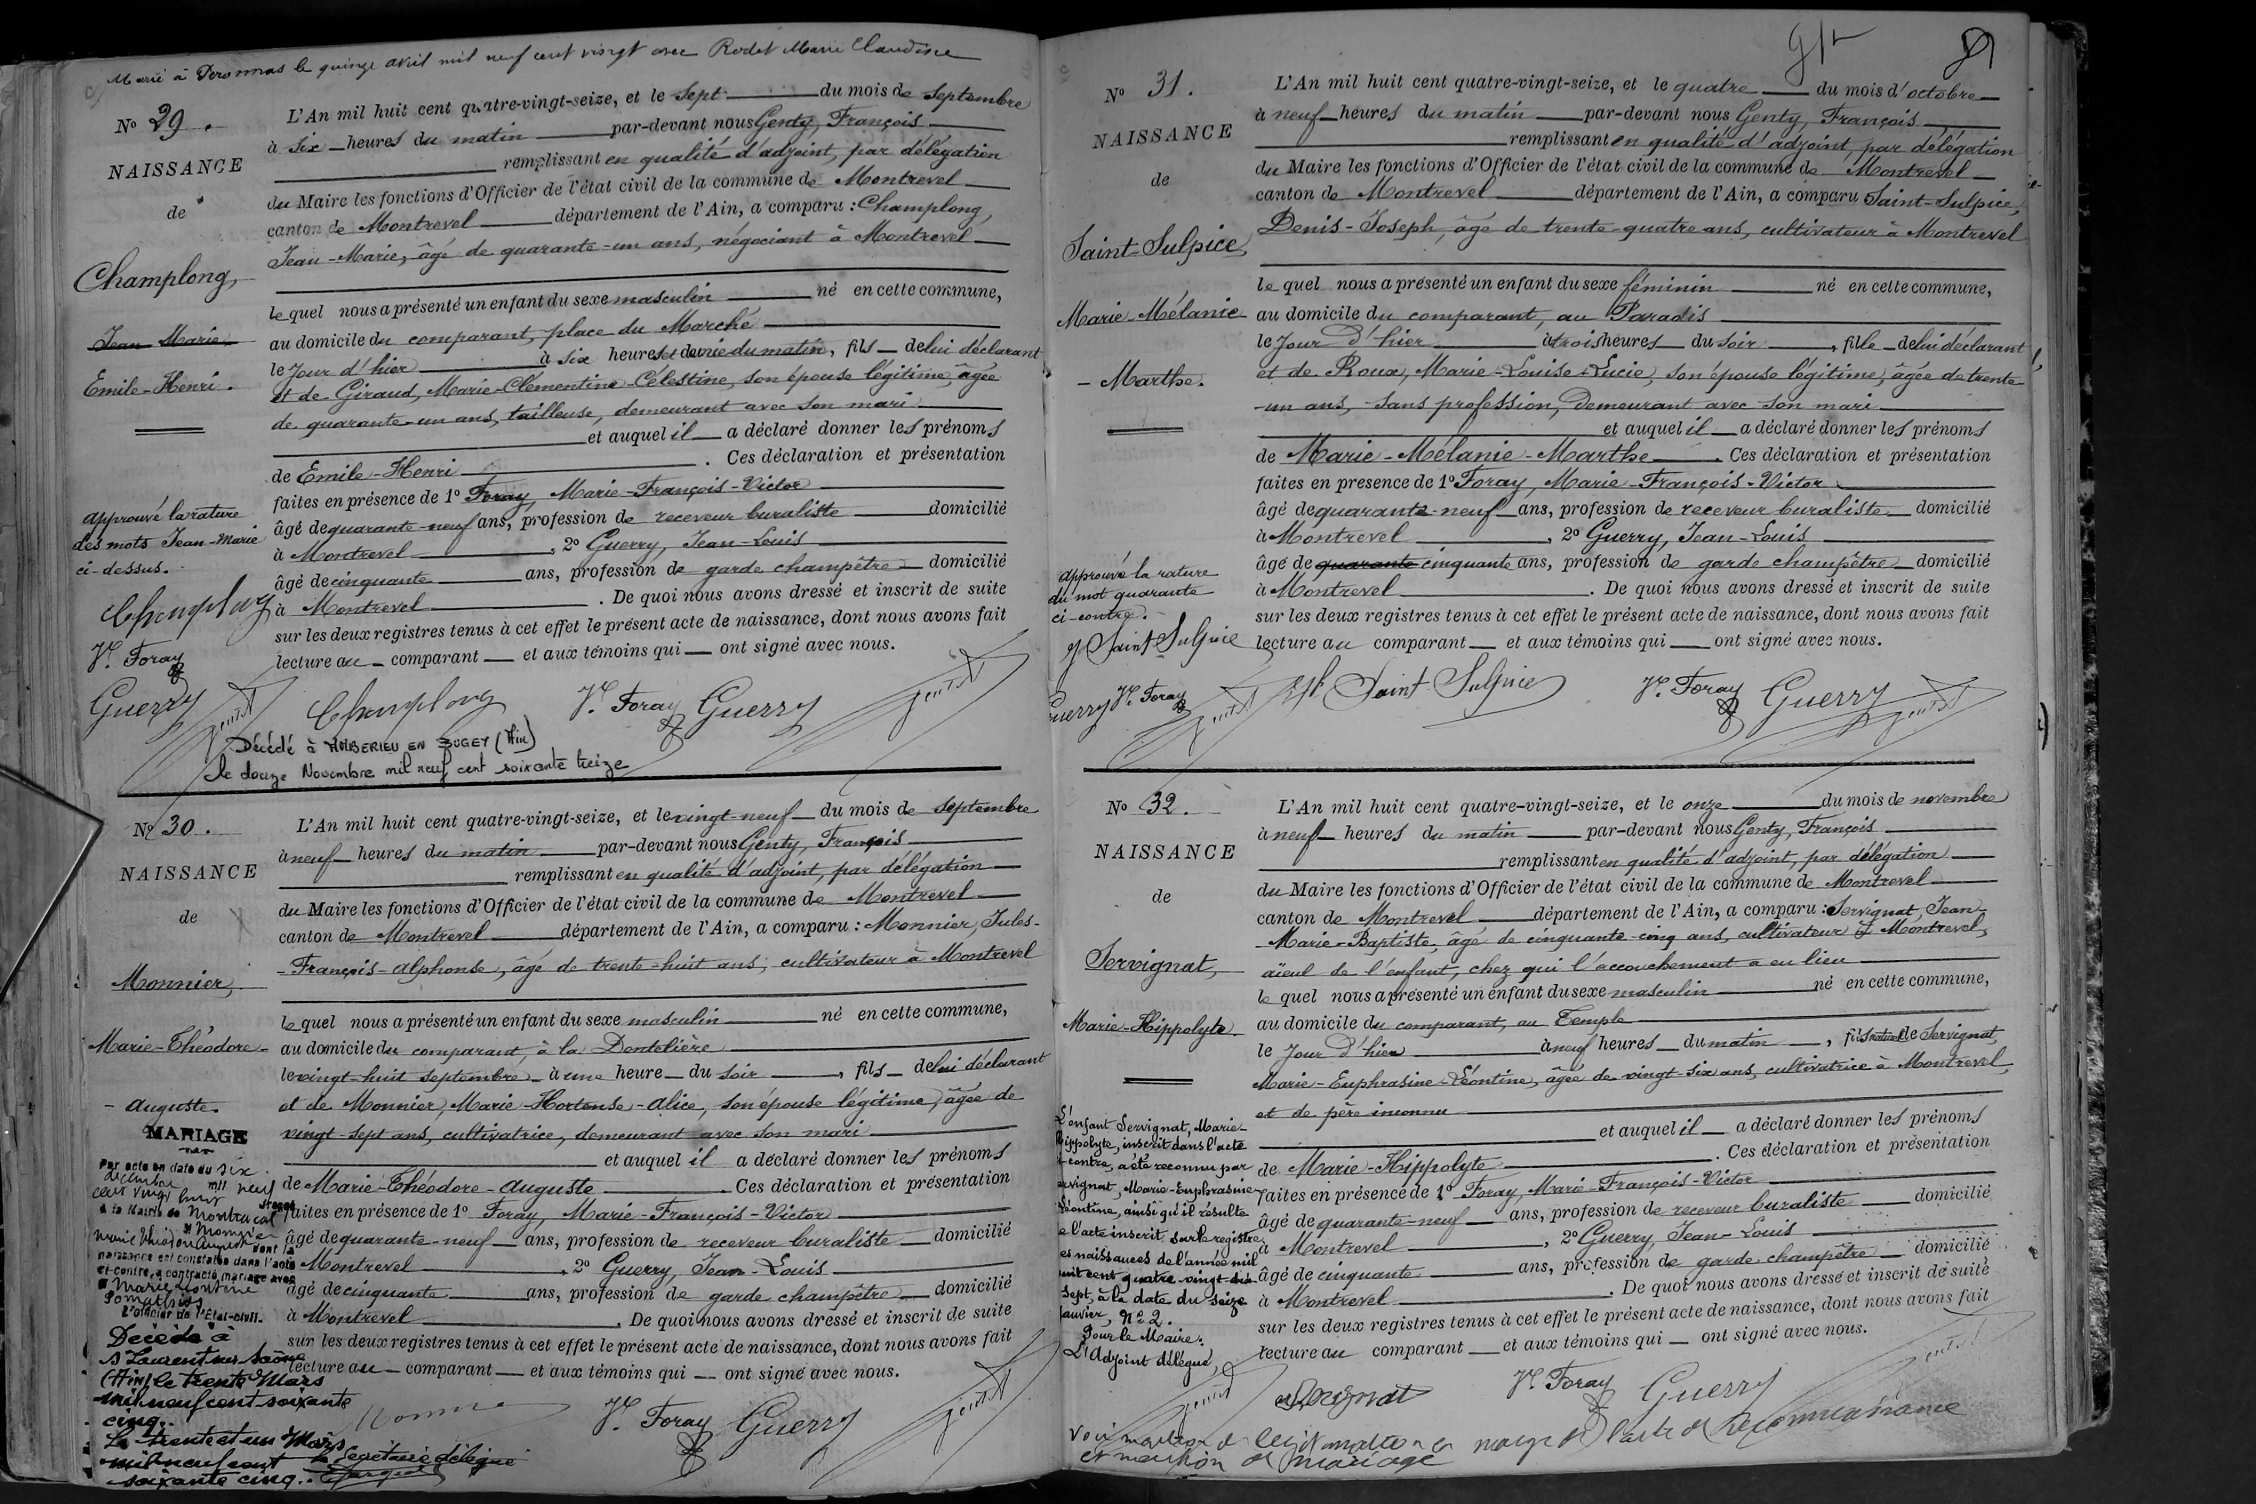 Marié à Péronnas le quinze avril mil neuf cent vingt avec Rodet Marie Claudine
N° 29.
NAISSANCE
de
Champlong,
Jean Marie
Emile-Henri.
approuvé la rature
des mots Jean-Marie
ci-dessus.
Champlong
Vr. Foray
Guerry
L'An mil huit cent quatre-vingt-seize, et le sept du mois de septembre
à six heures du matin par-devant nous Genty, François
remplissant en qualité d'adjoint, par délégation
du Maire les fonctions d'Officier de l'état civil de la commune de Montrevel
canton de Montrevel département de l'Ain, a comparu : Champlong,
Jean-Marie, âgé de quarante-un ans, négociant à Montrevel
lequel nous a présenté un enfant du sexe masculin né en cette commune,
au domicile du comparant, place du Marché
le jour d'hier à six heures et demie du matin, fils de lui déclarant
et de Giraud, Marie-Clémentine-Célestine, son épouse légitime, âgée
de quarante-un ans, tailleuse, demeurant avec son mari
et auquel il a déclaré donner les prénoms
de Emile-Henri. Ces déclaration et présentation
faites en présence de 1° Foray, Marie-François-Victor
âgé de quarante-neuf ans, profession de receveur buraliste domicilié
à Montrevel, 2° Guerry, Jean-Louis
âgé de cinquante ans, profession de garde champêtre domicilié
à Montrevel. De quoi nous avons dressé et inscrit de suite
sur les deux registres tenus à cet effet le présent acte de naissance, dont nous avons fait
lecture au comparant et aux témoins qui ont signé avec nous.
Champlong Vr. Foray Guerry Genty
Décédé à AMBERIEU EN BUGEY (Ain)
le douze Novembre mil neuf cent soixante treize
N° 30.
NAISSANCE
de
Monnier,
Marie-Théodore-
-Auguste.
MARIAGE
Par acte en date du six
décembre mil neuf
cent vingt huit dressé
à la Mairie de Montracol
M Monnier
Marie Théodore Auguste dont la
naissance est constatée dans l'acte
ci-contre, a contracté mariage avec
M Marie Léontine
L'officier de l'État-civil.
Décédé à
St Laurent sur Saône
(Ain) le trente Mars
mil neuf cent soixante
cinq.
Le trente et un Mars
mil neuf cent
soixante cinq.. le Secrétaire délégué
L'An mil huit cent quatre-vingt-seize, et le vingt-neuf du mois de septembre
à neuf heures du matin par-devant nous Genty, François
remplissant en qualité d'adjoint, par délégation
du Maire les fonctions d'Officier de l'état civil de la commune de Montrevel
canton de Montrevel département de l'Ain, a comparu : Monnier, Jules-
-François-Alphonse, âgé de trente-huit ans, cultivateur à Montrevel
lequel nous a présenté un enfant du sexe masculin né en cette commune,
au domicile du comparant, à la Dentelière
le vingt-huit septembre à une heure du soir, fils de lui déclarant
et de Monnier, Marie-Hortense-Alice, son épouse légitime, âgée de
vingt-sept ans, cultivatrice, demeurant avec son mari
et auquel il a déclaré donner les prénoms
de Marie-Théodore-Auguste. Ces déclaration et présentation
faites en présence de 1° Foray, Marie-François-Victor
âgé de quarante-neuf ans, profession de receveur buraliste domicilié
à Montrevel, 2° Guerry, Jean-Louis
âgé de cinquante ans, profession de garde champêtre domicilié
à Montrevel. De quoi nous avons dressé et inscrit de suite
sur les deux registres tenus à cet effet le présent acte de naissance, dont nous avons fait
lecture au comparant et aux témoins qui ont signé avec nous.
Vr. Foray Guerry Genty
N° 31.
NAISSANCE
de
Saint-Sulpice,
Marie-Mélanie-
-Marthe.
approuvé la rature
du mot quarante
ci-contre.
Saint-Sulpice
Guerry Vr. Foray
L'An mil huit cent quatre-vingt-seize, et le quatre du mois d'octobre
à neuf heures du matin par-devant nous Genty, François
remplissant en qualité d'adjoint, par délégation
du Maire les fonctions d'Officier de l'état civil de la commune de Montrevel
canton de Montrevel département de l'Ain, a comparu Saint-Sulpice,
Denis-Joseph, âgé de trente-quatre ans, cultivateur à Montrevel
lequel nous a présenté un enfant du sexe féminin né en cette commune,
au domicile du comparant, au Paradis
le jour d'hier à trois heures du soir, fille de lui déclarant
et de Roux, Marie-Louise-Lucie, son épouse légitime, âgée de trente-
un ans, sans profession, demeurant avec son mari
et auquel il a déclaré donner les prénoms
de Marie-Mélanie-Marthe. Ces déclaration et présentation
faites en présence de 1° Foray, Marie-François-Victor
âgé de quarante-neuf ans, profession de receveur buraliste domicilié
à Montrevel, 2° Guerry, Jean-Louis
âgé de quarante cinquante ans, profession de garde champêtre domicilié
à Montrevel. De quoi nous avons dressé et inscrit de suite
sur les deux registres tenus à cet effet le présent acte de naissance, dont nous avons fait
lecture au comparant et aux témoins qui ont signé avec nous.
Saint-Sulpice Vr. Foray Guerry Genty
N° 32.
NAISSANCE
de
Servignat,
Marie-Hippolyte
L'enfant Servignat, Marie-
Hippolyte, inscrit dans l'acte
ci-contre, a été reconnu par
Servignat, Marie-Euphrasine-
Léontine, ainsi qu'il résulte
de l'acte inscrit sur le registre
des naissances de l'année mil
huit cent quatre vingt dix-
sept, à la date du seize
janvier, N° 2.
Pour le Maire:
L'Adjoint délégué,
L'An mil huit cent quatre-vingt-seize, et le onze du mois de novembre
à neuf heures du matin par-devant nous Genty, François
remplissant en qualité d'adjoint, par délégation
du Maire les fonctions d'Officier de l'état civil de la commune de Montrevel
canton de Montrevel département de l'Ain, a comparu : Servignat, Jean-
-Marie-Baptiste, âgé de cinquante-cinq ans, cultivateur à Montrevel,
aïeul de l'enfant, chez qui l'accouchement a eu lieu
lequel nous a présenté un enfant du sexe masculin né en cette commune,
au domicile du comparant, au Temple
le jour d'hier à neuf heures du matin, fils naturel de Servignat,
Marie-Euphrasine-Léontine, âgée de vingt-six ans, cultivatrice à Montrevel,
et de père inconnu
et auquel il a déclaré donner les prénoms
de Marie-Hippolyte. Ces déclaration et présentation
faites en présence de 1° Foray, Marie-François-Victor
âgé de quarante-neuf ans, profession de receveur buraliste domicilié
à Montrevel, 2° Guerry, Jean-Louis
âgé de cinquante ans, profession de garde champêtre domicilié
à Montrevel. De quoi nous avons dressé et inscrit de suite
sur les deux registres tenus à cet effet le présent acte de naissance, dont nous avons fait
lecture au comparant et aux témoins qui ont signé avec nous.
Servignat Vr. Foray Guerry Genty
Voir mention de légitimation en marge de l'acte de reconnaissance
et mention de mariage